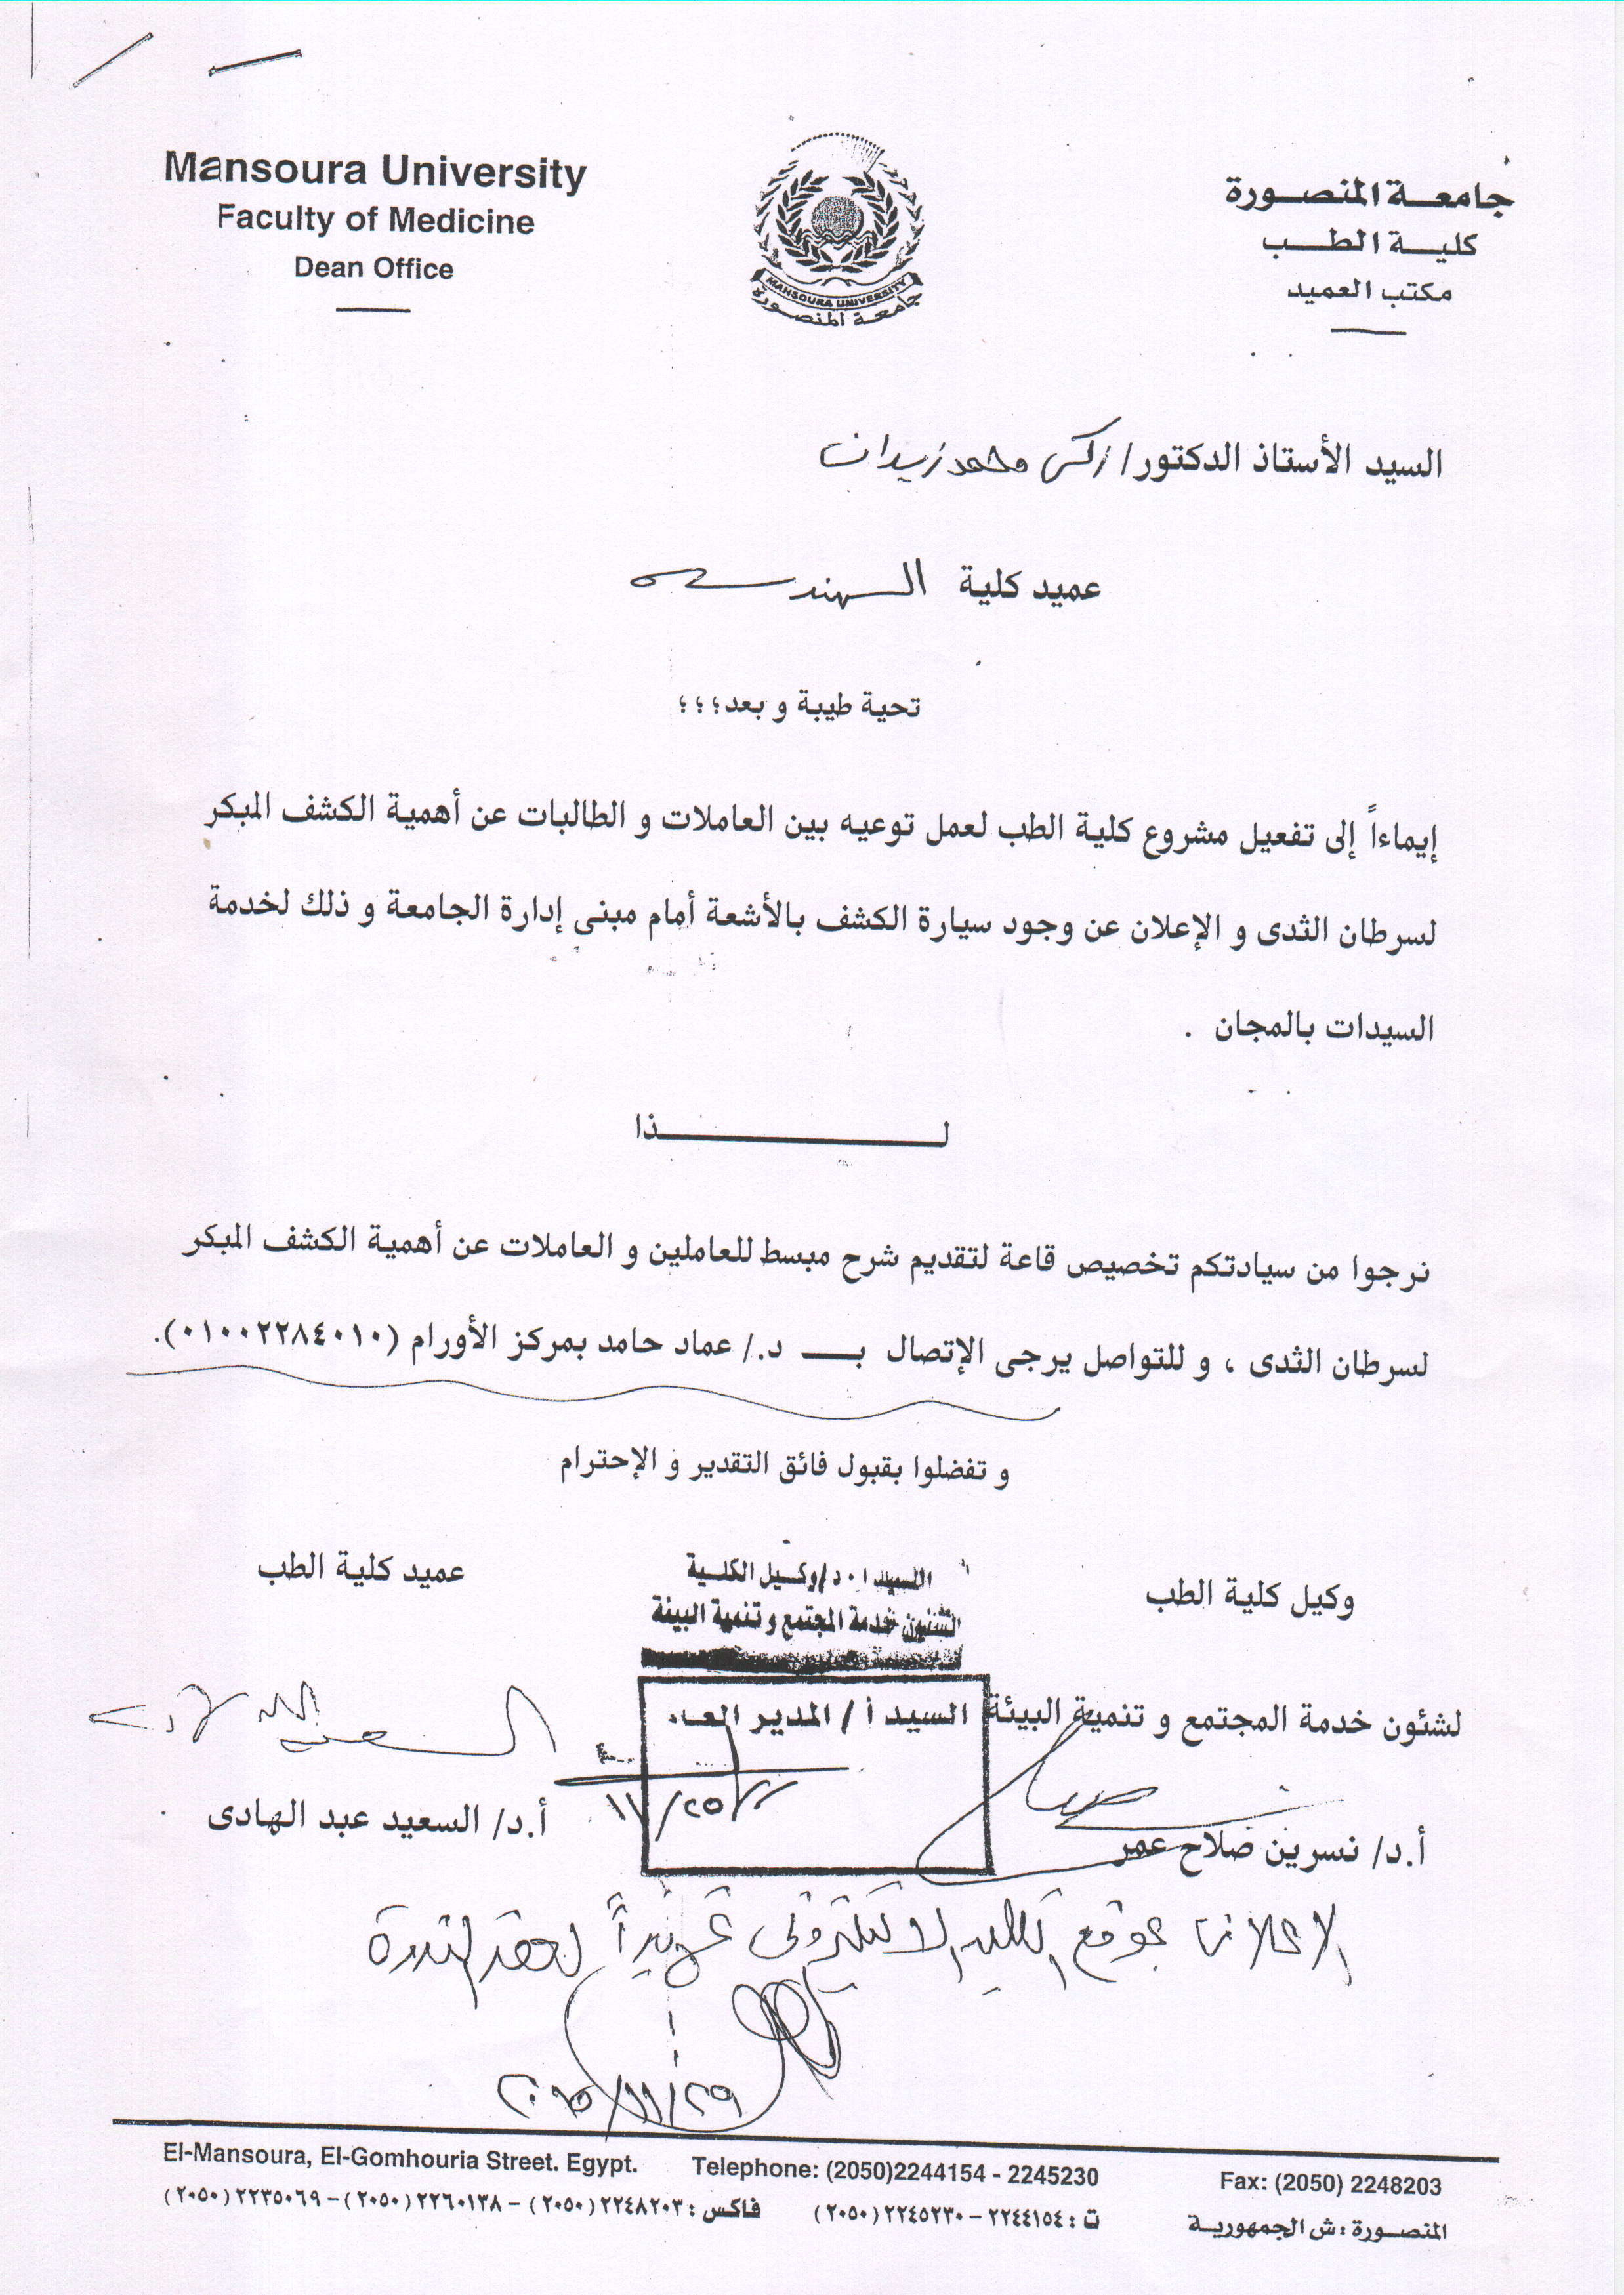 Mansoura University
Faculty of Medicine
Dean Office
جامعة المنصورة
كلية الطب
مكتب العميد
MANSOURA UNIVERSITY
جامعة المنصورة
السيد الأستاذ الدكتور/ زكى محمد زيدان
عميد كلية الهندسه
تحية طيبة و بعد؛؛؛
إيماءاً إلى تفعيل مشروع كلية الطب لعمل توعيه بين العاملات و الطالبات عن أهمية الكشف المبكر
لسرطان الثدى و الإعلان عن وجود سيارة الكشف بالأشعة أمام مبنى إدارة الجامعة و ذلك لخدمة
السيدات بالمجان .
لــــــــذا
نرجوا من سيادتكم تخصيص قاعة لتقديم شرح مبسط للعاملين و العاملات عن أهمية الكشف المبكر
لسرطان الثدى ، و للتواصل يرجى الإتصال بـــ د./ عماد حامد بمركز الأورام (٠١٠٠٢٢٨٤٠١٠).
و تفضلوا بقبول فائق التقدير و الإحترام
وكيل كلية الطب
السيد ا.د/وكيل الكلية
عميد كلية الطب
لشئون خدمة المجتمع و تنمية البيئة
لشئون خدمة المجتمع و تنمية البيئة
السيد أ / المدير العام
أ.د/ نسرين صلاح عمر
أ.د/ السعيد عبد الهادى
الاعلان بموقع الكليه الالكترونى تمهيداً لعقد الندوة
٢٠١٥/١١/٢٩
El-Mansoura, El-Gomhouria Street. Egypt.
Telephone: (2050)2244154 - 2245230
Fax: (2050) 2248203
المنصورة : ش الجمهورية
ت : ٢٢٤٤١٥٤ – ٢٢٤٥٢٣٠ (٢٠٥٠)
فاكس : ٢٢٤٨٢٠٣ (٢٠٥٠) – ٢٢٦٠١٣٨ (٢٠٥٠) – ٢٢٣٥٠٦٩ (٢٠٥٠)